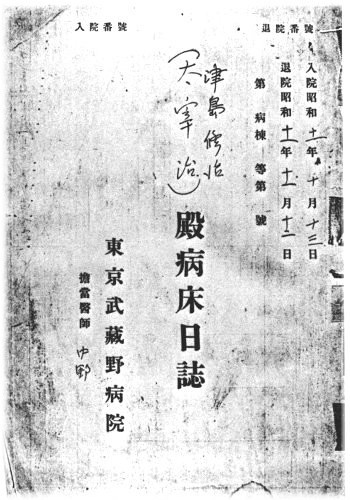 退院番號
入院番號
入院昭和十一年十月十三日
退院昭和十一年十一月十二日
第 病棟 等第 號
津島修治
(太宰治)
殿病床日誌
東京武蔵野病院
擔當醫師 中野